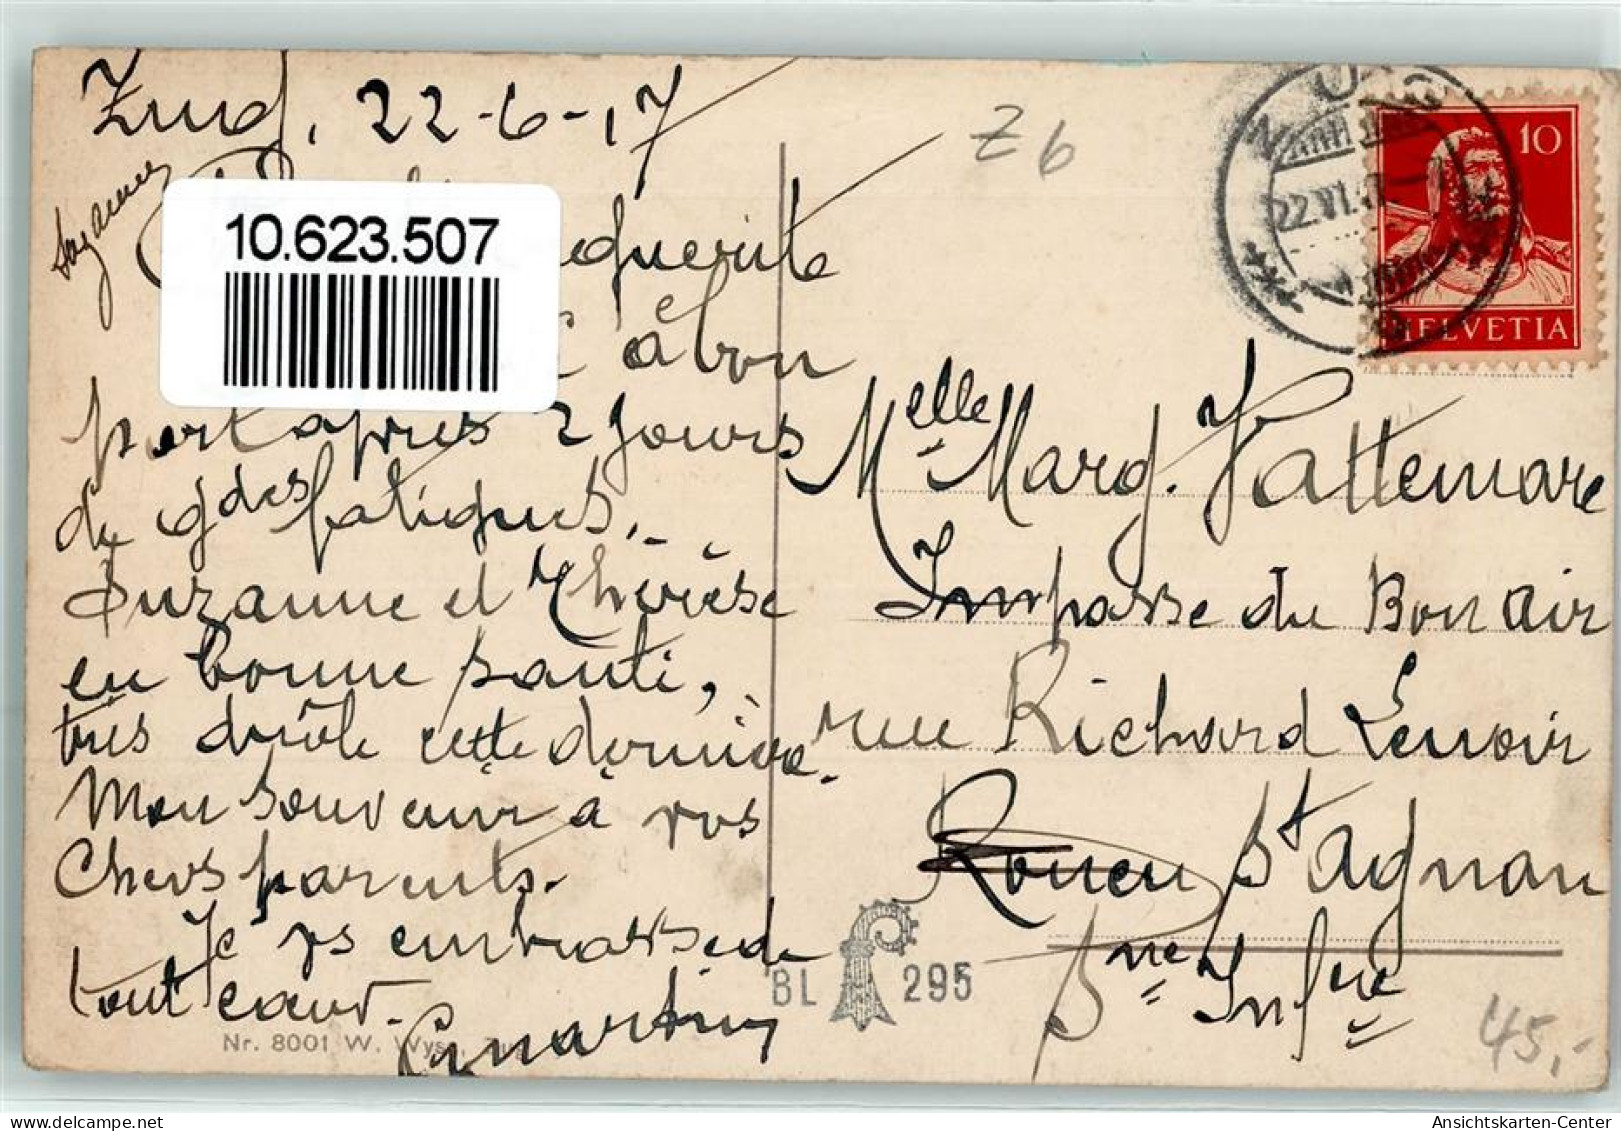 Zug, 22-6-17
Suzanne
10.623.507
guerite
à bon
port après 2 jours
de gdes fatigues.
Suzanne et Thérèse
en bonne santé,
très drôle cette dernière.
Mon souvenir à vos
chers parents.
Je vs embrasse de
tout cœur.
Nr. 8001 W. Wyss, Zug
Z6
ZUG
22.VI.17
10
HELVETIA
Melle Marg. Pattemare
Impasse du Bon Air
rue Richard Lenoir
Rouen St Agnan
Sne Infre
BL 295
45,-
Ansichtskarten-Center